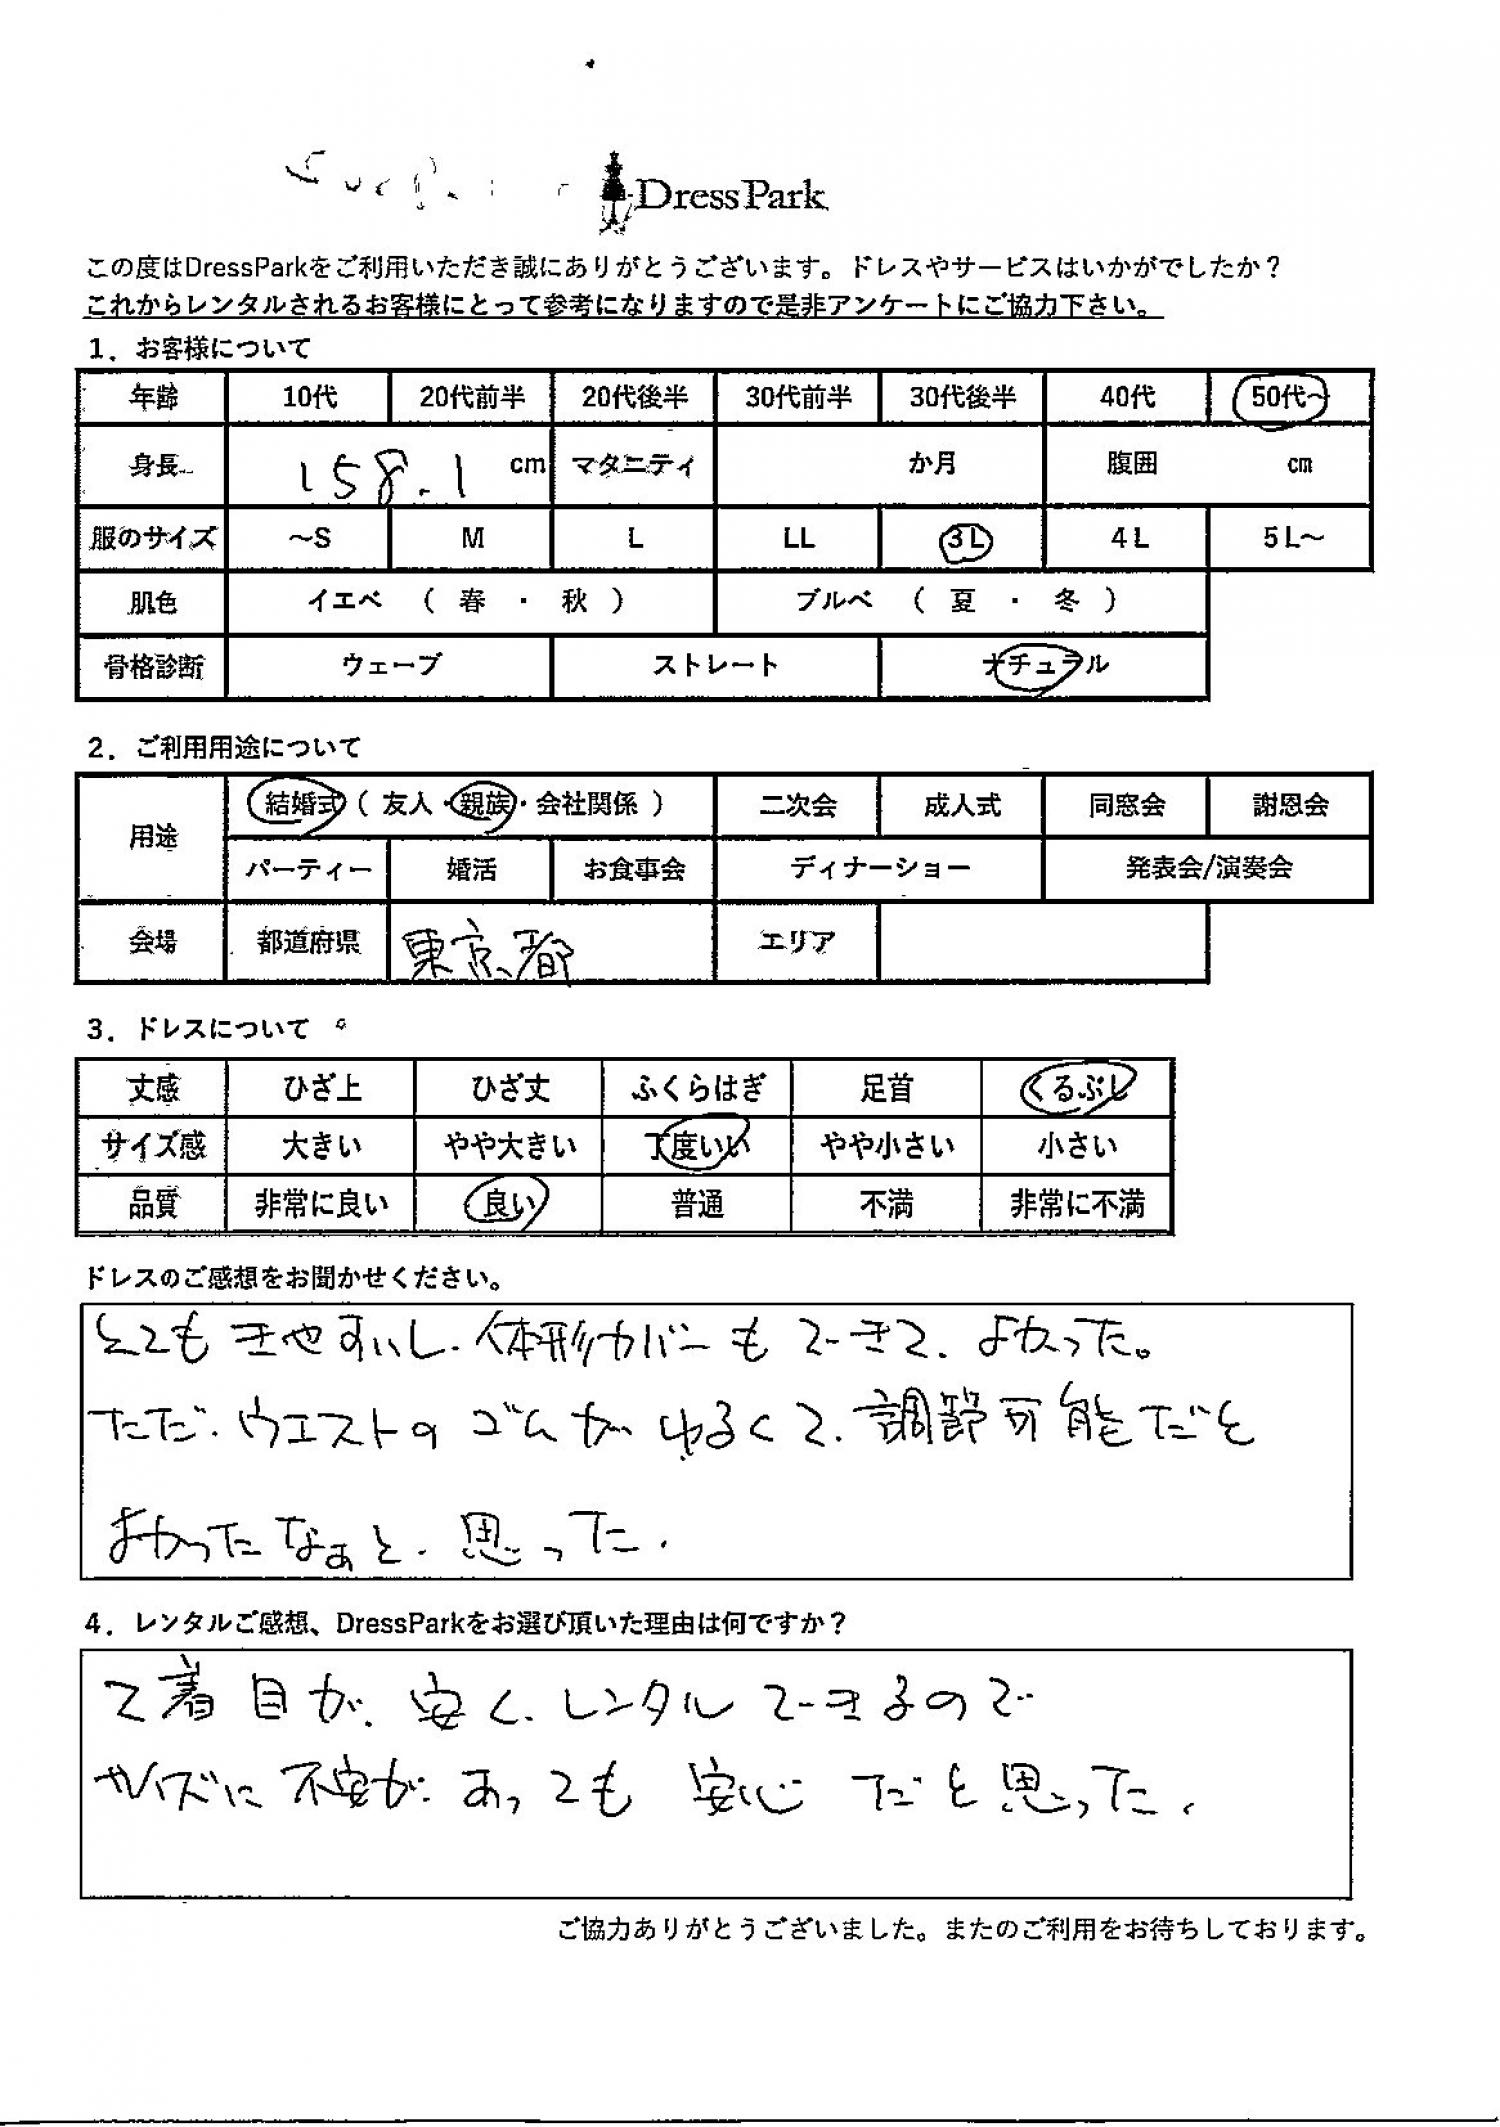 DressPark
この度はDressParkをご利用いただき誠にありがとうございます。ドレスやサービスはいかがでしたか？
これからレンタルされるお客様にとって参考になりますので是非アンケートにご協力下さい。
1．お客様について
年齢 10代 20代前半 20代後半 30代前半 30代後半 40代 50代～
身長 158.1 cm マタニティ か月 腹囲 cm
服のサイズ ～S M L LL 3L 4L 5L～
肌色 イエベ （ 春 ・ 秋 ） ブルベ （ 夏 ・ 冬 ）
骨格診断 ウェーブ ストレート ナチュラル
2．ご利用用途について
用途 結婚式（ 友人・親族・会社関係 ） 二次会 成人式 同窓会 謝恩会
パーティー 婚活 お食事会 ディナーショー 発表会/演奏会
会場 都道府県 東京都 エリア
3．ドレスについて
丈感 ひざ上 ひざ丈 ふくらはぎ 足首 くるぶし
サイズ感 大きい やや大きい 丁度いい やや小さい 小さい
品質 非常に良い 良い 普通 不満 非常に不満
ドレスのご感想をお聞かせください。
とてもきやすいし、体形カバーもできて、よかった。
ただ、ウエストのゴムがゆるくて、調節可能だと
よかったなぁと、思った。
4．レンタルご感想、DressParkをお選び頂いた理由は何ですか？
2着目が、安く、レンタルできるので
サイズに不安が、あっても安心だと思った。
ご協力ありがとうございました。またのご利用をお待ちしております。